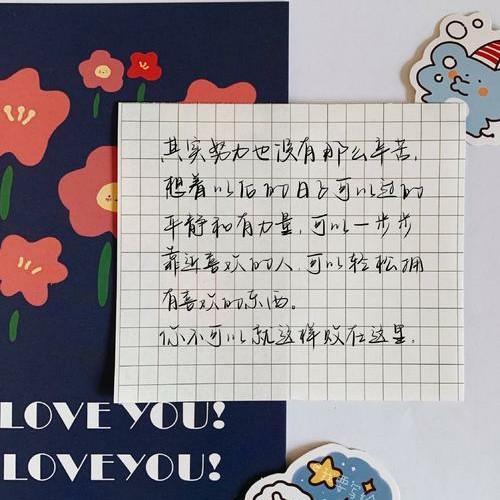 其实努力也没有那么辛苦,
想着以后的日子可以过的
平静和有力量,可以一步步
靠近喜欢的人,可以轻松拥
有喜欢的东西。
你不可以就这样败在这里.
LOVE YOU!
LOVEYOU!